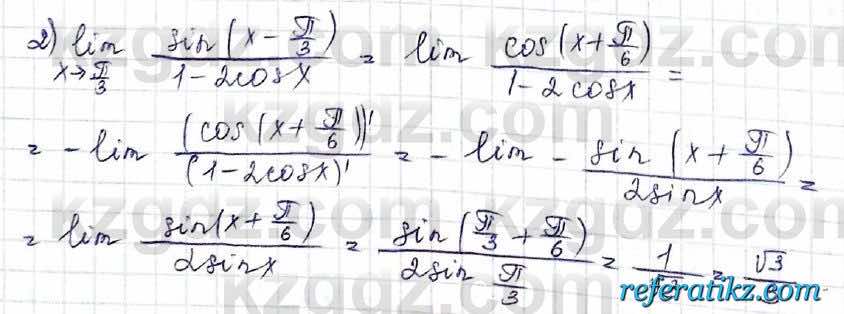 2) lim x→π/3 sin(x − π/3) / 1 − 2cosx = lim cos(x + π/6) / 1 − 2cosx =
= − lim (cos(x + π/6))' / (1 − 2cosx)' = − lim − sin(x + π/6) / 2sinx =
= lim sin(x + π/6) / 2sinx = sin(π/3 + π/6) / 2sin π/3 = 1 / = √3 /
kzgdz.com
referatikz.com